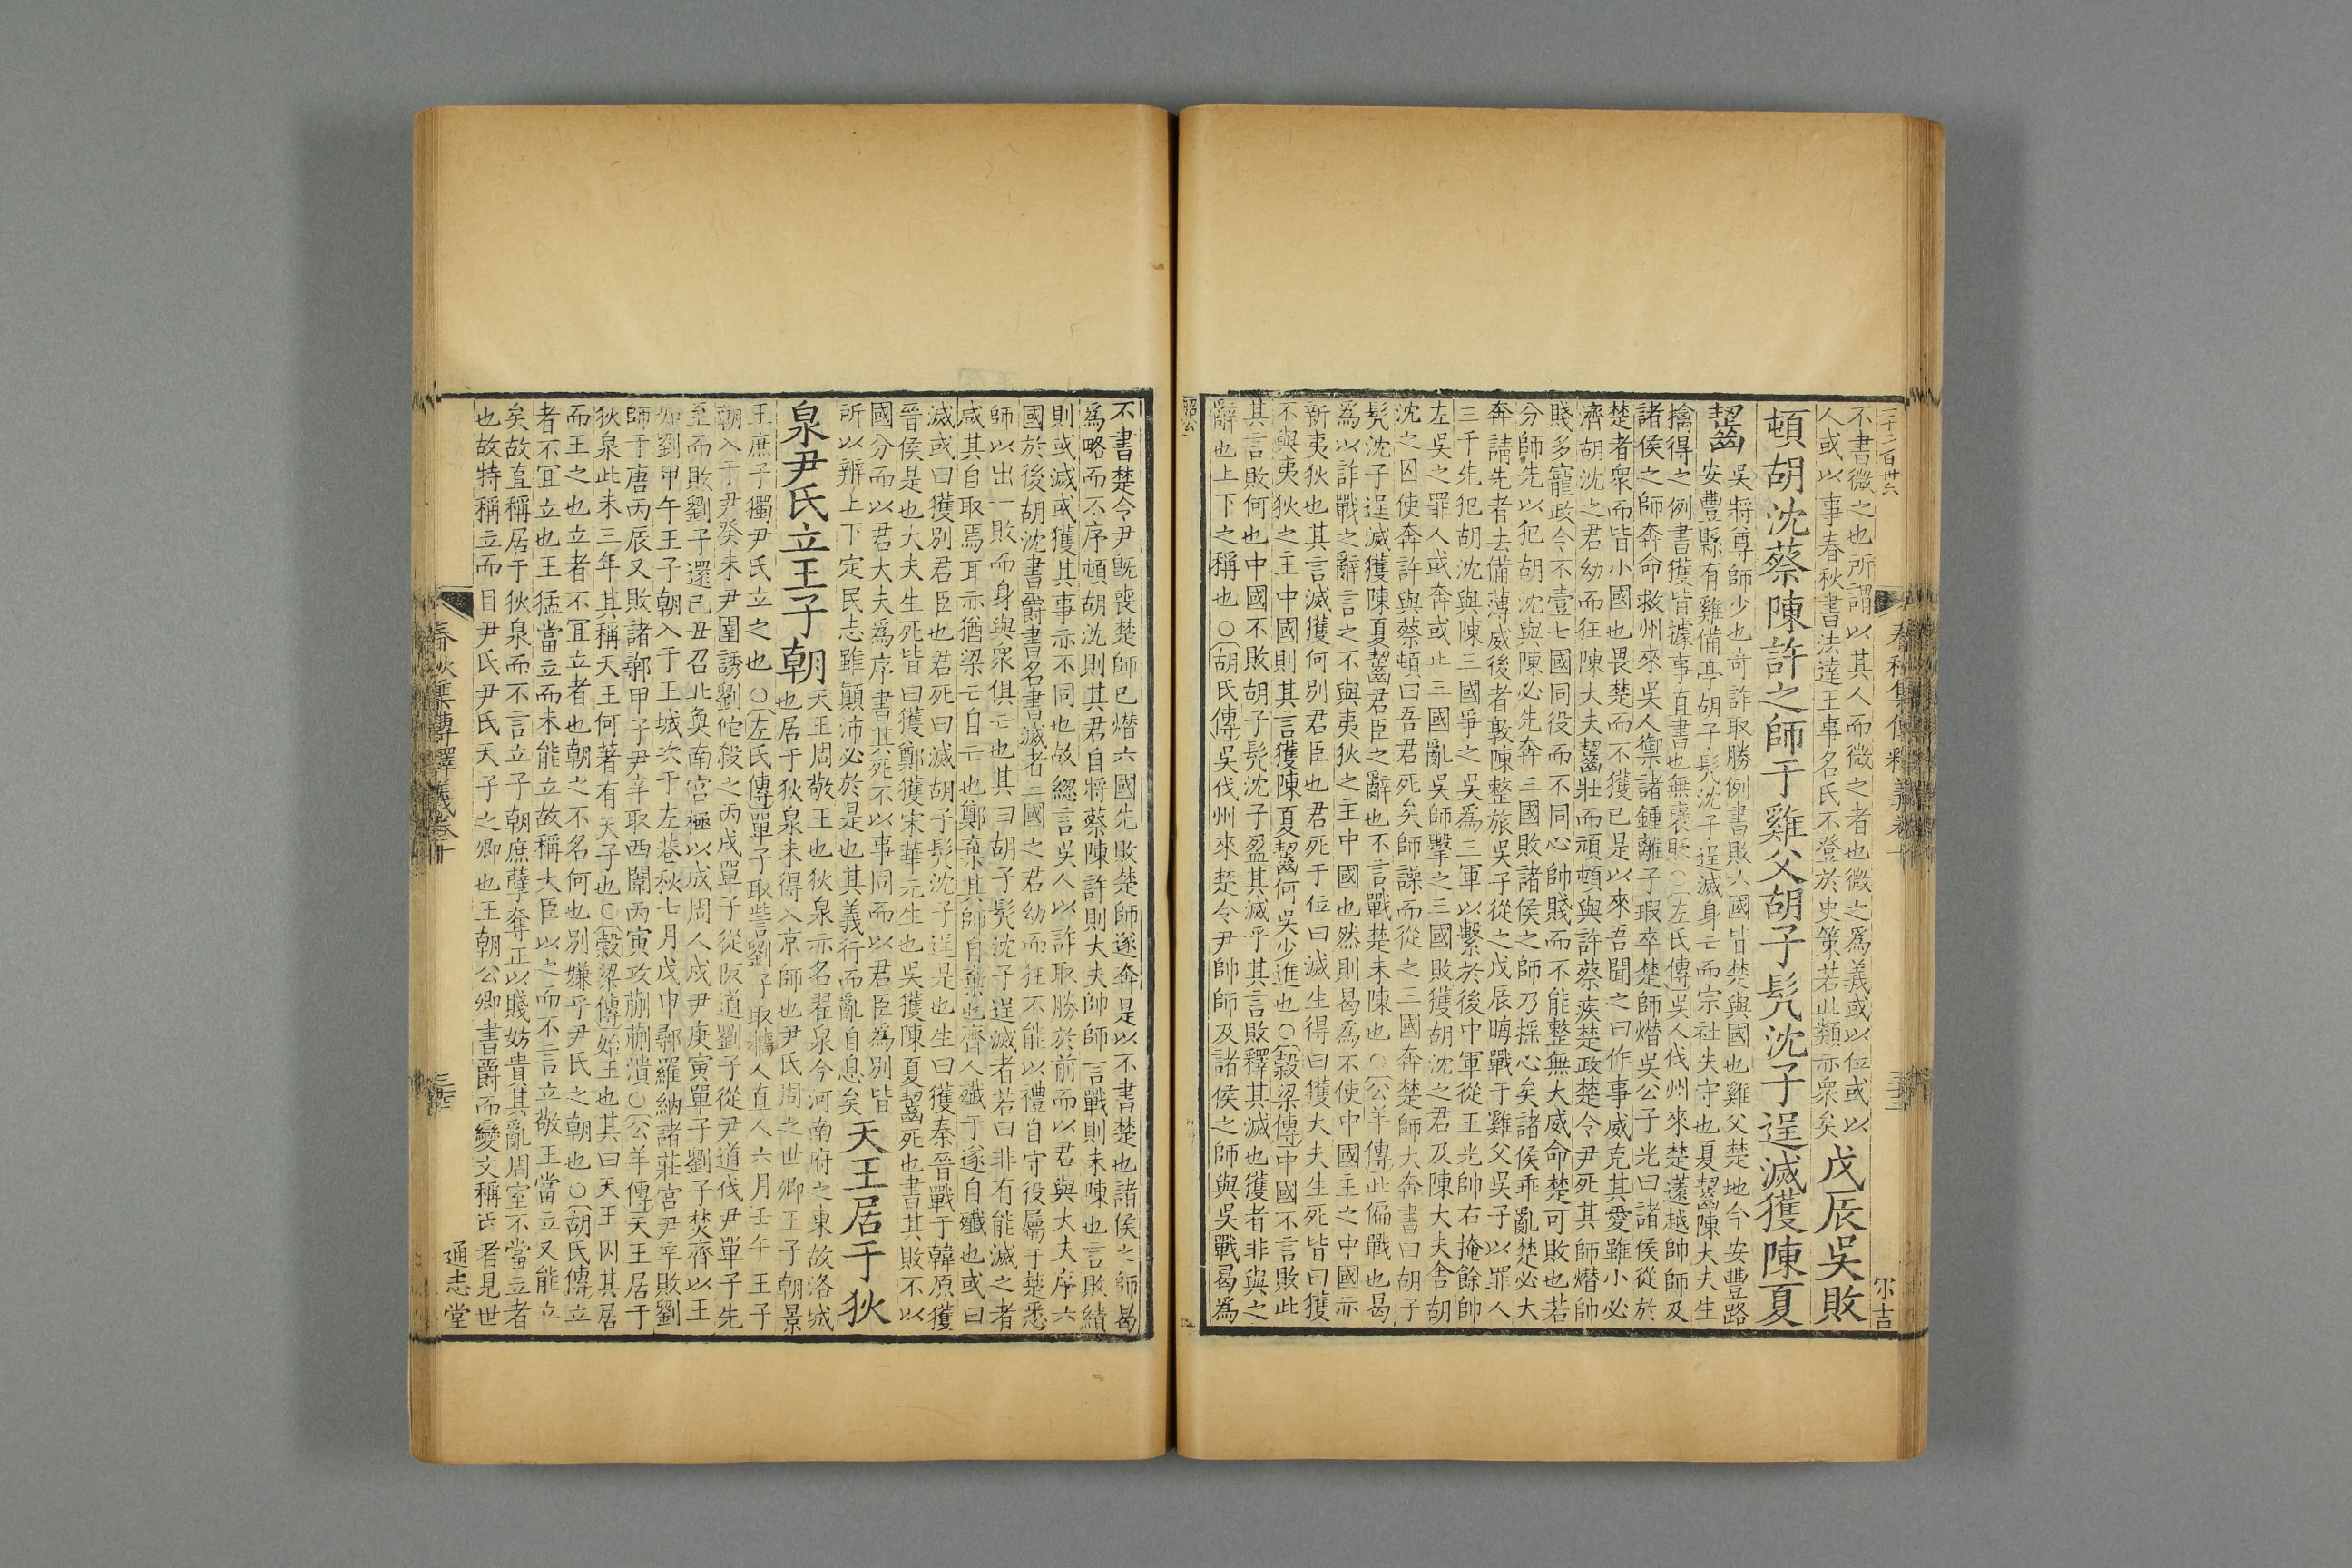 不書微之也所謂以其人而微之者也微之爲義或以位或以
人或以事春秋書法達王事名氏不登於史策若此類亦衆矣
戊辰吳敗
頓胡沈蔡陳許之師于雞父胡子髡沈子逞滅獲陳夏
齧
吳將尊師少也奇詐取勝例書敗六國皆楚與國也雞父楚地今安豐路
安豐縣有雞備亭胡子髡沈子逞滅身亡而宗社失守也夏齧陳大夫生
擒得之例書獲皆據事直書也無襃貶○左氏傳吳人伐州來楚薳越帥師及
諸侯之師奔命救州來吳人禦諸鍾離子瑕卒楚師熸吳公子光曰諸侯從於
楚者衆而皆小國也畏楚而不獲已是以來吾聞之曰作事威克其愛雖小必
濟胡沈之君幼而狂陳大夫齧壯而頑頓與許蔡疾楚政楚令尹死其師熸帥
賤多寵政令不壹七國同役而不同心帥賤而不能整無大威命楚可敗也若
分師先以犯胡沈與陳必先奔三國敗諸侯之師乃揺心矣諸侯乖亂楚必大
奔請先者去備薄威後者敦陳整旅吳子從之戊辰晦戰于雞父吳子以罪人
三千先犯胡沈與陳三國爭之吳爲三軍以繫於後中軍從王光帥右掩餘帥
左吳之罪人或奔或止三國亂吳師擊之三國敗獲胡沈之君及陳大夫舍胡
沈之囚使奔許與蔡頓曰吾君死矣師譟而從之三國奔楚師大奔書曰胡子
髡沈子逞滅獲陳夏齧君臣之辭也不言戰楚未陳也○公羊傳此偏戰也曷
爲以詐戰之辭言之不與夷狄之主中國也然則曷爲不使中國主之中國亦
新夷狄也其言滅獲何別君臣也君死于位曰滅生得曰獲大夫生死皆曰獲
不與夷狄之主中國則其言獲陳夏齧何吳少進也○穀梁傳中國不言敗此
其言敗何也中國不敗胡子髡沈子盈其滅乎其言敗釋其滅也獲者非與之
辭也上下之稱也○胡氏傳吳伐州來楚令尹帥師及諸侯之師與吳戰曷爲
不書楚令尹既喪楚師已熸六國先敗楚師遂奔是以不書楚也諸侯之師曷
爲略而不序頓胡沈則其君自將蔡陳許則大夫帥師言戰則未陳也言敗績
則或滅或獲其事亦不同也故緫言吳人以詐取勝於前而以君與大夫序六
國於後胡沈書爵書名書滅者二國之君幼而狂不能以禮自守役屬于楚悉
師以出一敗而身與衆俱亡也其曰胡子髡沈子逞滅者若曰非有能滅之者
咸其自取焉耳亦猶梁亡自亡也鄭棄其師自棄也齊人殲于遂自殲也或曰
滅或曰獲別君臣也君死曰滅胡子髡沈子逞是也生曰獲秦晉戰于韓原獲
晉侯是也大夫生死皆曰獲鄭獲宋華元生也吳獲陳夏齧死也書其敗不以
國分而以君大夫爲序書其死不以事同而以君臣爲別皆
所以辨上下定民志雖顚沛必於是也其義行而亂自息矣
天王居于狄
泉尹氏立王子朝
天王周敬王也狄泉亦名翟泉今河南府之東故洛城
也居于狄泉未得入京師也尹氏周之世卿王子朝景
王庶子獨尹氏立之也○左氏傳單子取訾劉子取牆人直人六月壬午王子
朝入于尹癸未尹圉誘劉佗殺之丙戌單子從阪道劉子從尹道伐尹單子先
至而敗劉子還己丑召北奐南宮極以成周人戍尹庚寅單子劉子樊齊以王
如劉甲午王子朝入于王城次于左巷秋七月戊申鄩羅納諸莊宮尹辛敗劉
師于唐丙辰又敗諸鄩甲子尹辛取西闈丙寅攻蒯蒯潰○公羊傳天王居于
狄泉此未三年其稱天王何著有天子也○穀梁傳始王也其曰天王因其居
而王之也立者不冝立者也朝之不名何也別嫌乎尹氏之朝也○胡氏傳立
者不冝立也王猛當立而未能立故稱大臣以之而不言立敬王當立又能立
矣故直稱居于狄泉而不言立子朝庶孽奪正以賤妨貴其亂周室不當立者
也故特稱立而目尹氏尹氏天子之卿也王朝公卿書爵而變文稱氏者見世
春秋集傳釋義卷十
通志堂